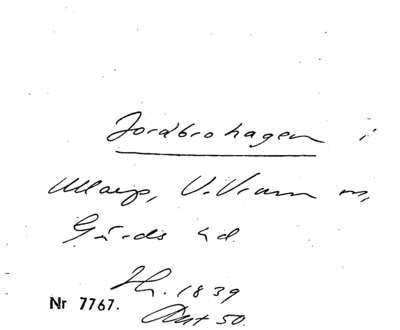 Jordbrohagen i
Ullarp, V. Vram sn,
Gärds hd
1839
Nr 7767.
Akt 50.